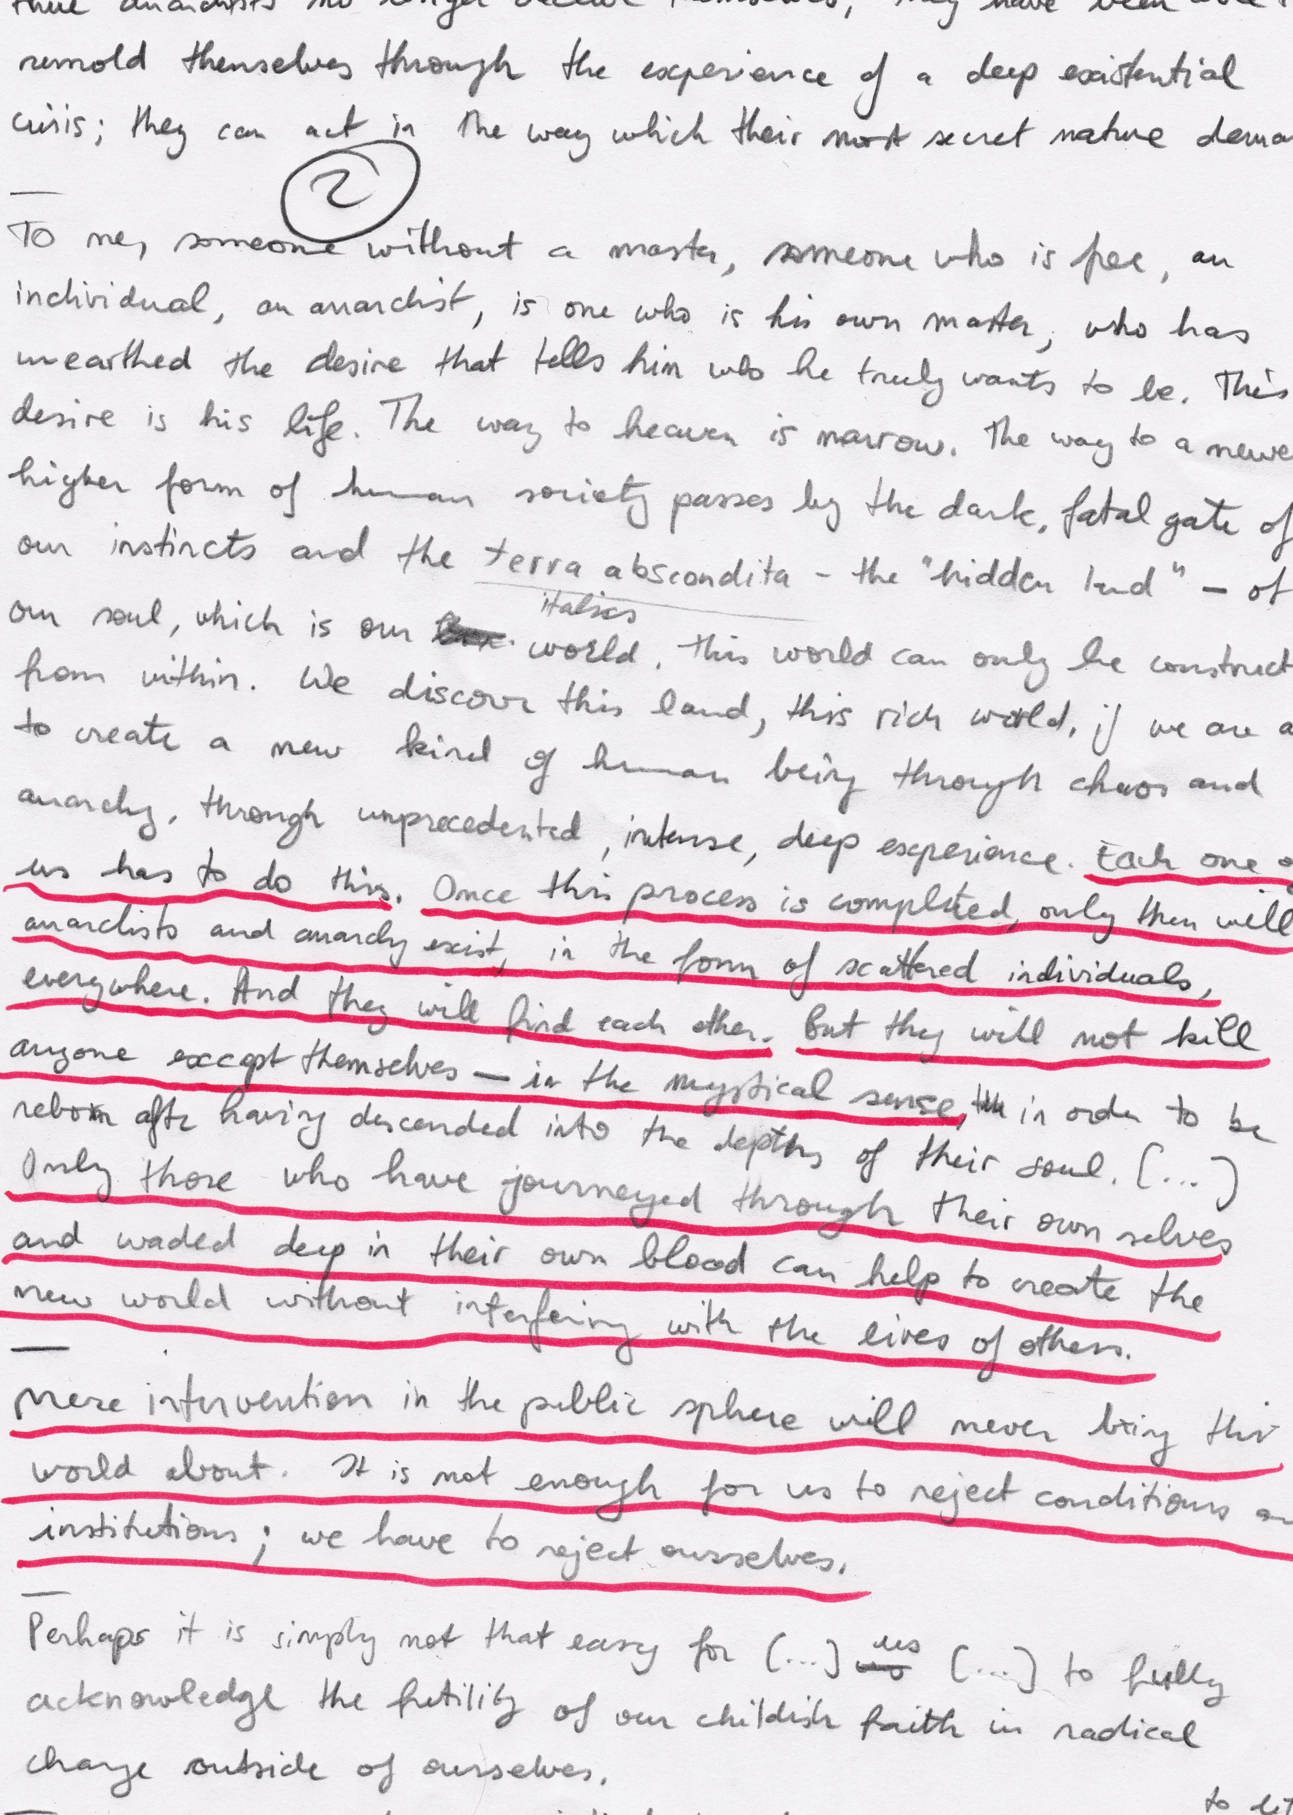 anarchists no longer deceive themselves, they have been
remold themselves through the experience of a deep existential
crisis; they can act in the way which their most secret nature dema
2
To me, someone without a master, someone who is free, an
individual, an anarchist, is one who is his own master, who has
unearthed the desire that tells him who he truly wants to be. This
desire is his life. The way to heaven is narrow. The way to a newe
higher form of human society passes by the dark, fatal gate of
our instincts and the terra abscondita - the "hidden land" - of
italics
our soul, which is our world. This world can only be construct
from within. We discover this land, this rich world, if we are a
to create a new kind of human being through chaos and
anarchy, through unprecedented, intense, deep experience. Each one o
us has to do this. Once this process is completed, only then will
anarchists and anarchy exist, in the form of scattered individuals,
everywhere. And they will find each other. But they will not kill
anyone except themselves - in the mystical sense, in order to be
reborn after having descended into the depths of their soul. (...)
Only those who have journeyed through their own selves
and waded deep in their own blood can help to create the
new world without interfering with the lives of others.
Mere intervention in the public sphere will never bring this
world about. It is not enough for us to reject conditions an
institutions; we have to reject ourselves.
Perhaps it is simply not that easy for (...) us (...) to fully
acknowledge the futility of our childish faith in radical
change outside of ourselves.
to